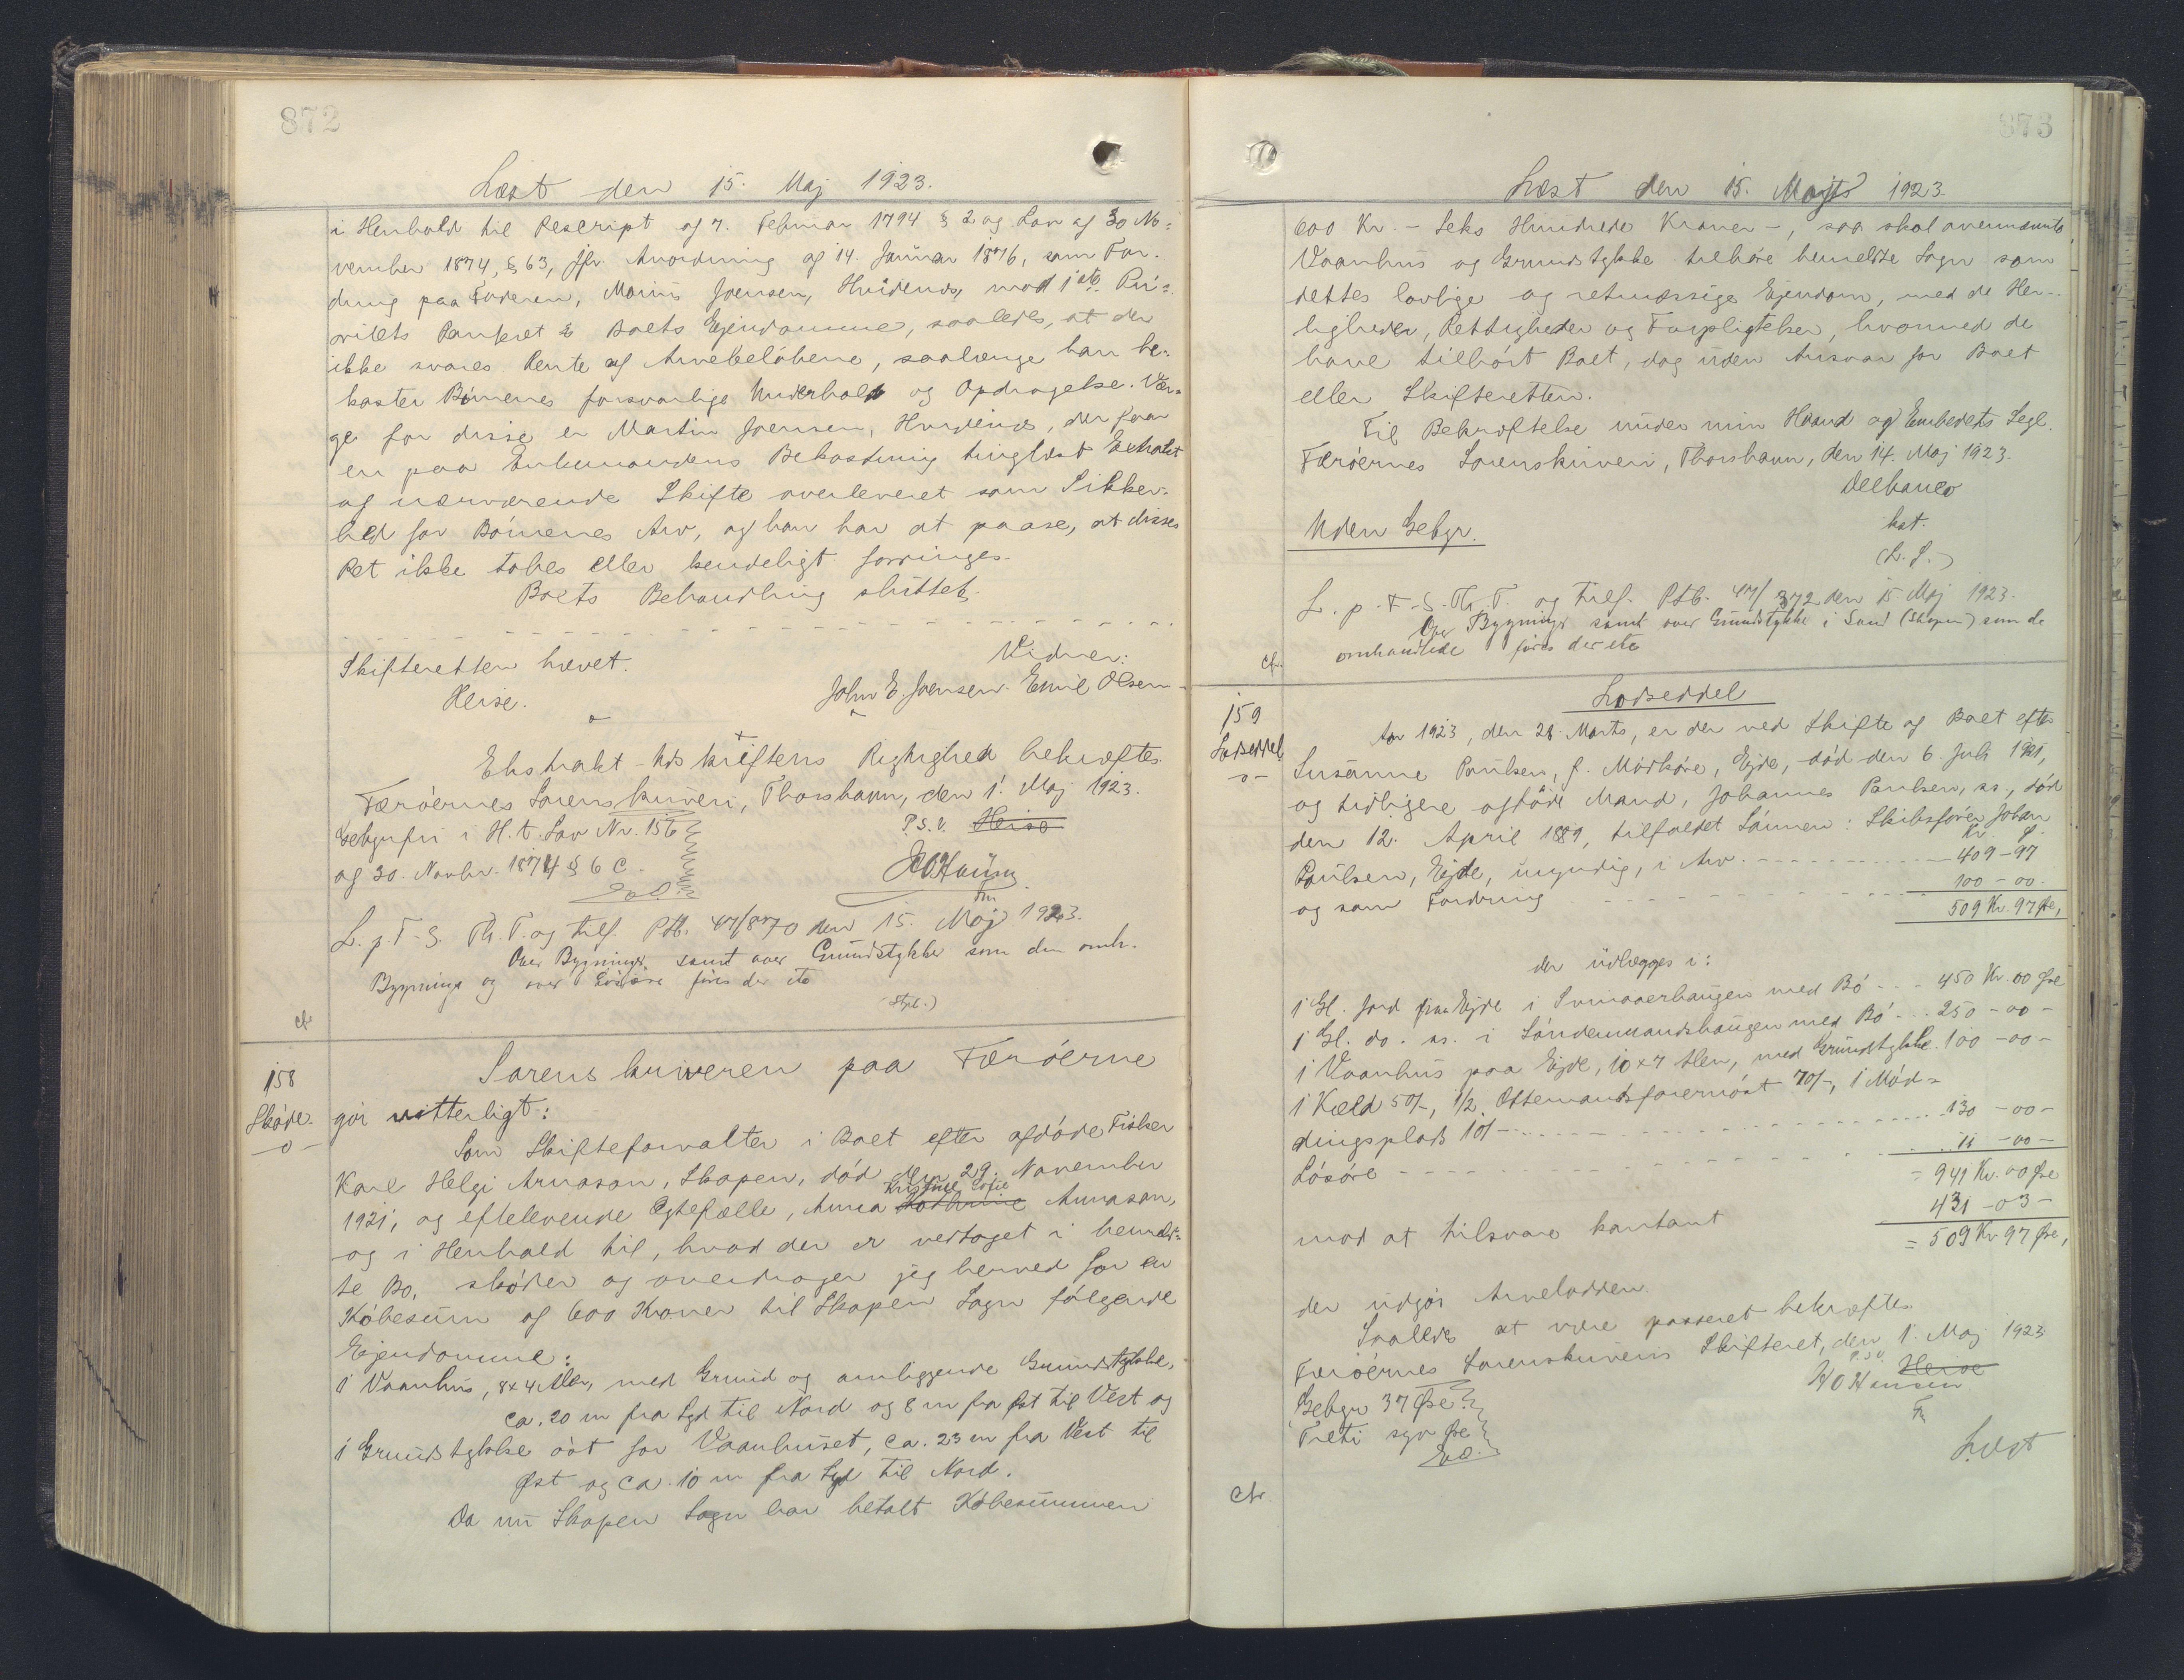 872
Læst den 15. Maj 1923.
i Henhold til Rescript af 7. Februar 1794 § 2 og Lov af 30 No=
vember 1874, § 63, jfr. Anordning af 14. Januar 1876, som For-
dring paa Faderen, Marius Joensen, Hvidenæs, mod 1ste Pri=
oritets Panteret i Boets Ejendomme, saaledes, at der
ikke svares Rente af Arvebeløbene, saalænge han be=
koster Børnenes forsvarlige Underhold og Opdragelse. Vær=
ge for disse er Martin Joensen, Hvidenæs, der faar
en paa Enkemandens Bekostning tinglæst Extrakt
af nærværende Skifte overleveret som Sikker-
hed for Børnenes Arv, og han har at paase, at disses
Ret ikke tabes eller kendeligt forringes.
Boets Behandling sluttet.
Skifteretten hævet.
Vidner:
Heise.
John E. Joensen. Emil Olsen
Ekstrakt-Udskriftens Rigtighed bekræftes.
Færøernes Sorenskriveri, Thorshavn, den 1. Maj 1923.
Gebyrfri i H. t. Lov Nr. 156
P.S.V. Heise
af 30. Novbr. 1874 § 6 C.
Fm
L. p. F. S. Th. T. og tilf. Ptb. 47/870 den 15. Maj 1923.
Over Bygninger samt over Grundstykker som den omh.
Bygninge og over Løsøre føres der ikke
cfr
158
Skøde.
-o-
Sorenskriveren paa Færøerne
gør vitterligt:
Som Skifteforvalter i Boet efter afdøde Fisker
Karl Helgi Arnason, Skopen, død den 29. November
Kristine Sofie
1921, og efterlevende Ægtefælle, Anna Kathrine Arnason,
og i Henhold til, hvad der er vedtaget i bemeld-
te Bo, skøder og overdrager jeg herved for en
Købesum af 600 Kroner til Skopen Sogn følgende
Ejendomme:
1 Vaanhus, 8x4 Alen, med Grund og omliggende Grundstykke,
ca. 20 m fra Syd til Nord og 8 m fra Øst til Vest og
1 Grundstykke øst for Vaanhuset, ca. 23 m fra Vest til
Øst og ca. 10 m fra Syd til Nord.
Da nu Skopen Sogn har betalt Købesummen
873
Læst den 15. Maj 1923
600 Kr. - Seks Hundrede Kroner -, saa skal ovennævnte
Vaanhus og Grundstykke tilhøre bemeldte Sogn som
dettes lovlige og retmæssige Ejendom, med de Her-
ligheder, Rettigheder og Forpligtelser, hvormed de
have tilhørt Boet, dog uden Ansvar for Boet
eller Skifteretten.
Til Bekræftelse under min Haand og Embedets Segl.
Færøernes Sorenskriveri, Thorshavn, den 14. Maj 1923.
Delbanco
Uden Gebyr.
kst.
(L. S.)
L. p. F. S. Th. T. og tilf. Ptb. 47/372 den 15 Maj 1923.
Over Bygninger samt over Grundstykke i Sand (Skopen) som de
omhandlede føres der ikke
cfr.
159
Lodseddel
-o-
Lodseddel
Aar 1923, den 28. Marts, er der ved Skifte af Boet efter
Susanne Poulsen, f. Mørkøre, Ejde, død den 6. Juli 1921,
og tidligere afdøde Mand, Johannes Poulsen, ss., død
den 12. April 1889, tilfaldet Sønnen: Skibsfører Johan
Kr. Ø.
Poulsen, Ejde, myndig, i Arv. 409-97
og som Fordring 100-00.
509 Kr. 97 Øre,
der udlægges i:
1 Gl. Jord paa Ejde i Innaverhaugen med Bø 450 Kr. 00 Øre
1 Gl. do. ss. i Søndenmandshaugen med Bø 250-00-
1 Vaanhus paa Ejde, 10x7 Alen, med Grundstykke. 100-00-
1 Kæld 50/-, 1/2 Ottemandsfarernøst 70/-, 1 Mød=
dingsplads 10/- 130-00-
Løsøre 11-00-
= 941 Kr. 00 Øre
mod at tilsvare kontant 431-03-
= 509 Kr 97 Øre,
der udgør Arvelodden.
Saaledes at være passeret bekræftes.
Færøernes Sorenskriveris Skifteret, den 1. Maj 1923
P.S.V. Heise
Gebyr 37 Øre
Treti syv Øre
Fm
Læst
cfr.